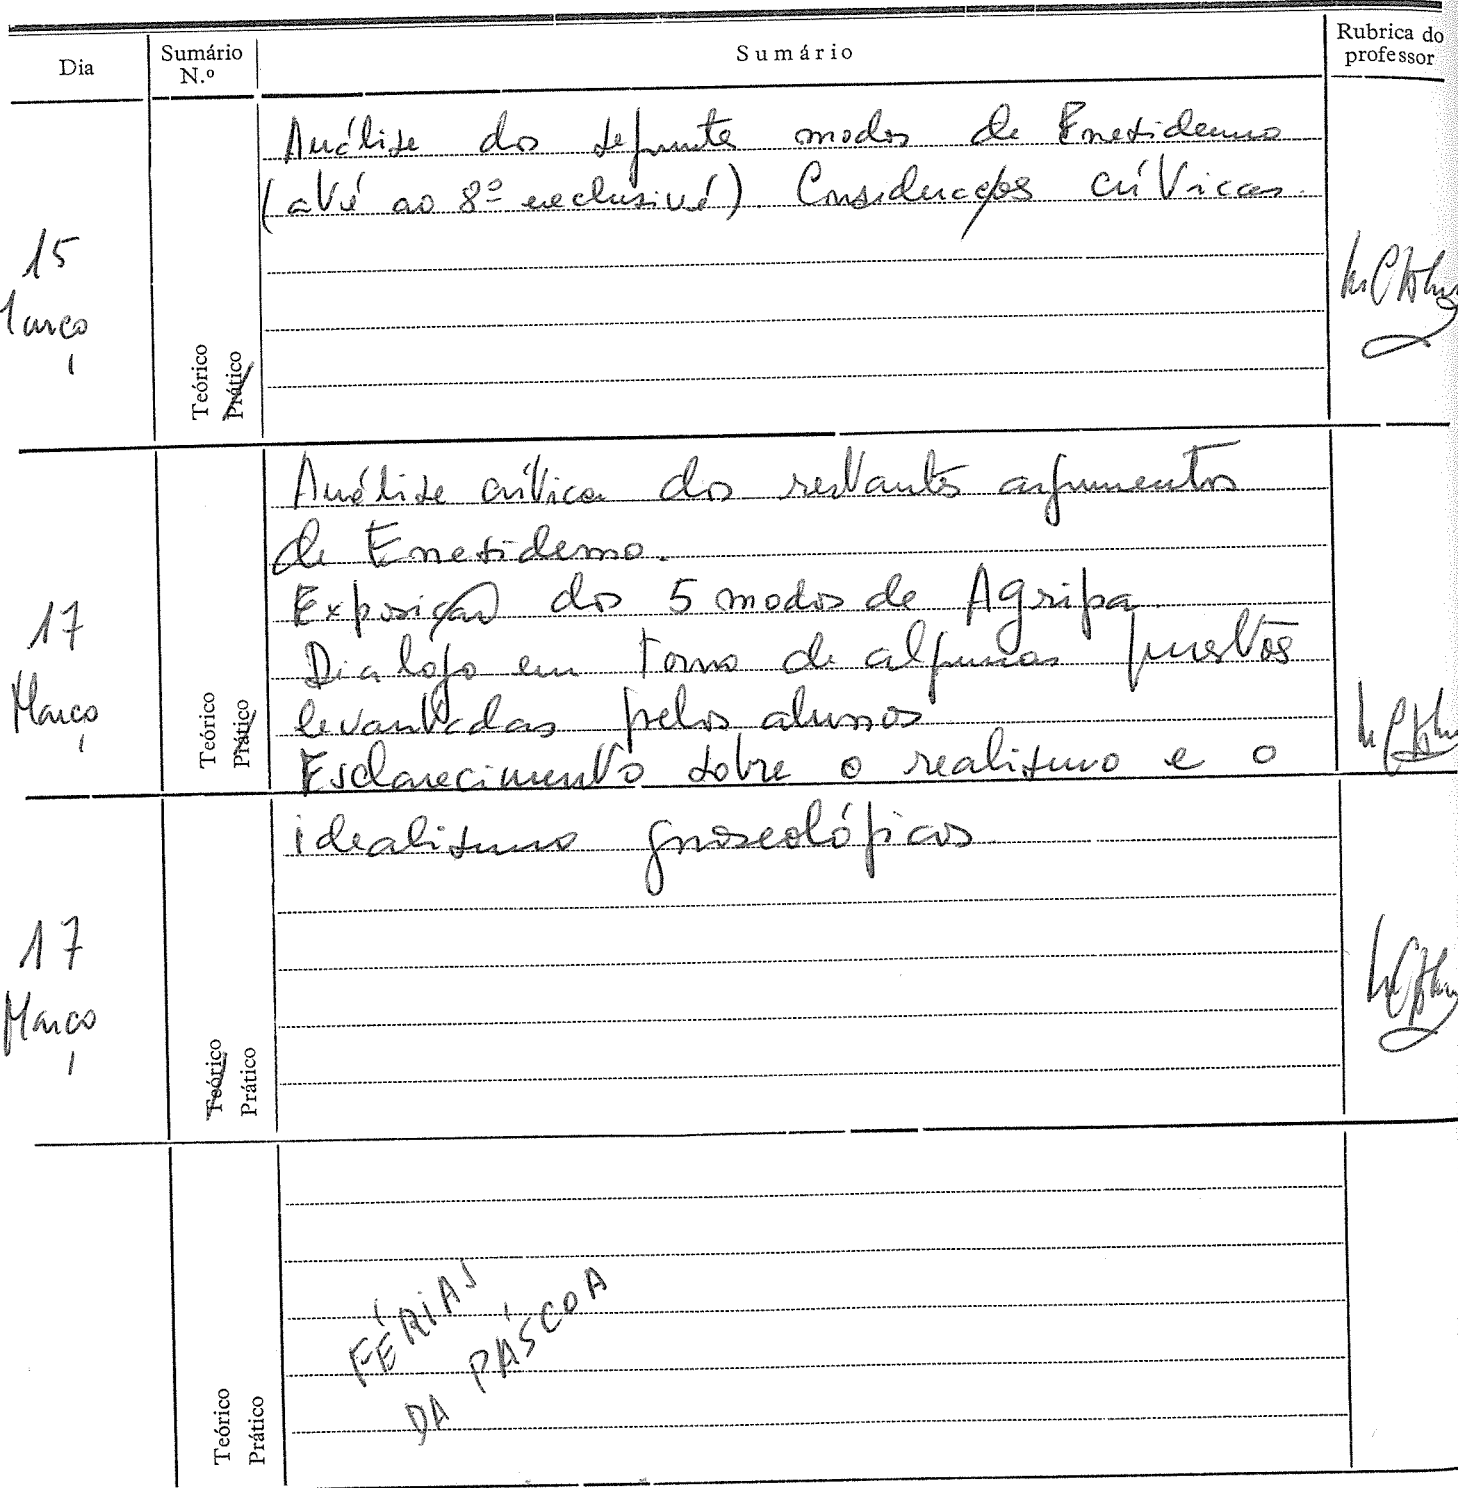 Dia Sumário N.º Sumário Rubrica do professor
Análise dos seguintes modos de Enesidemo
(até ao 8º exclusivé). Considerações críticas.
15
Março
Teórico
Prático
Análise crítica dos restantes argumentos
de Enesidemo.
Exposição dos 5 modos de Agripa.
Dialogo em torno de algumas questões
levantadas pelos alunos
Esclarecimento sobre o realismo e o
17
Março
Teórico
Prático
idealismo gnoseológicos.
17
Março
Teórico
Prático
FÉRIAS
DA PÁSCOA
Teórico
Prático